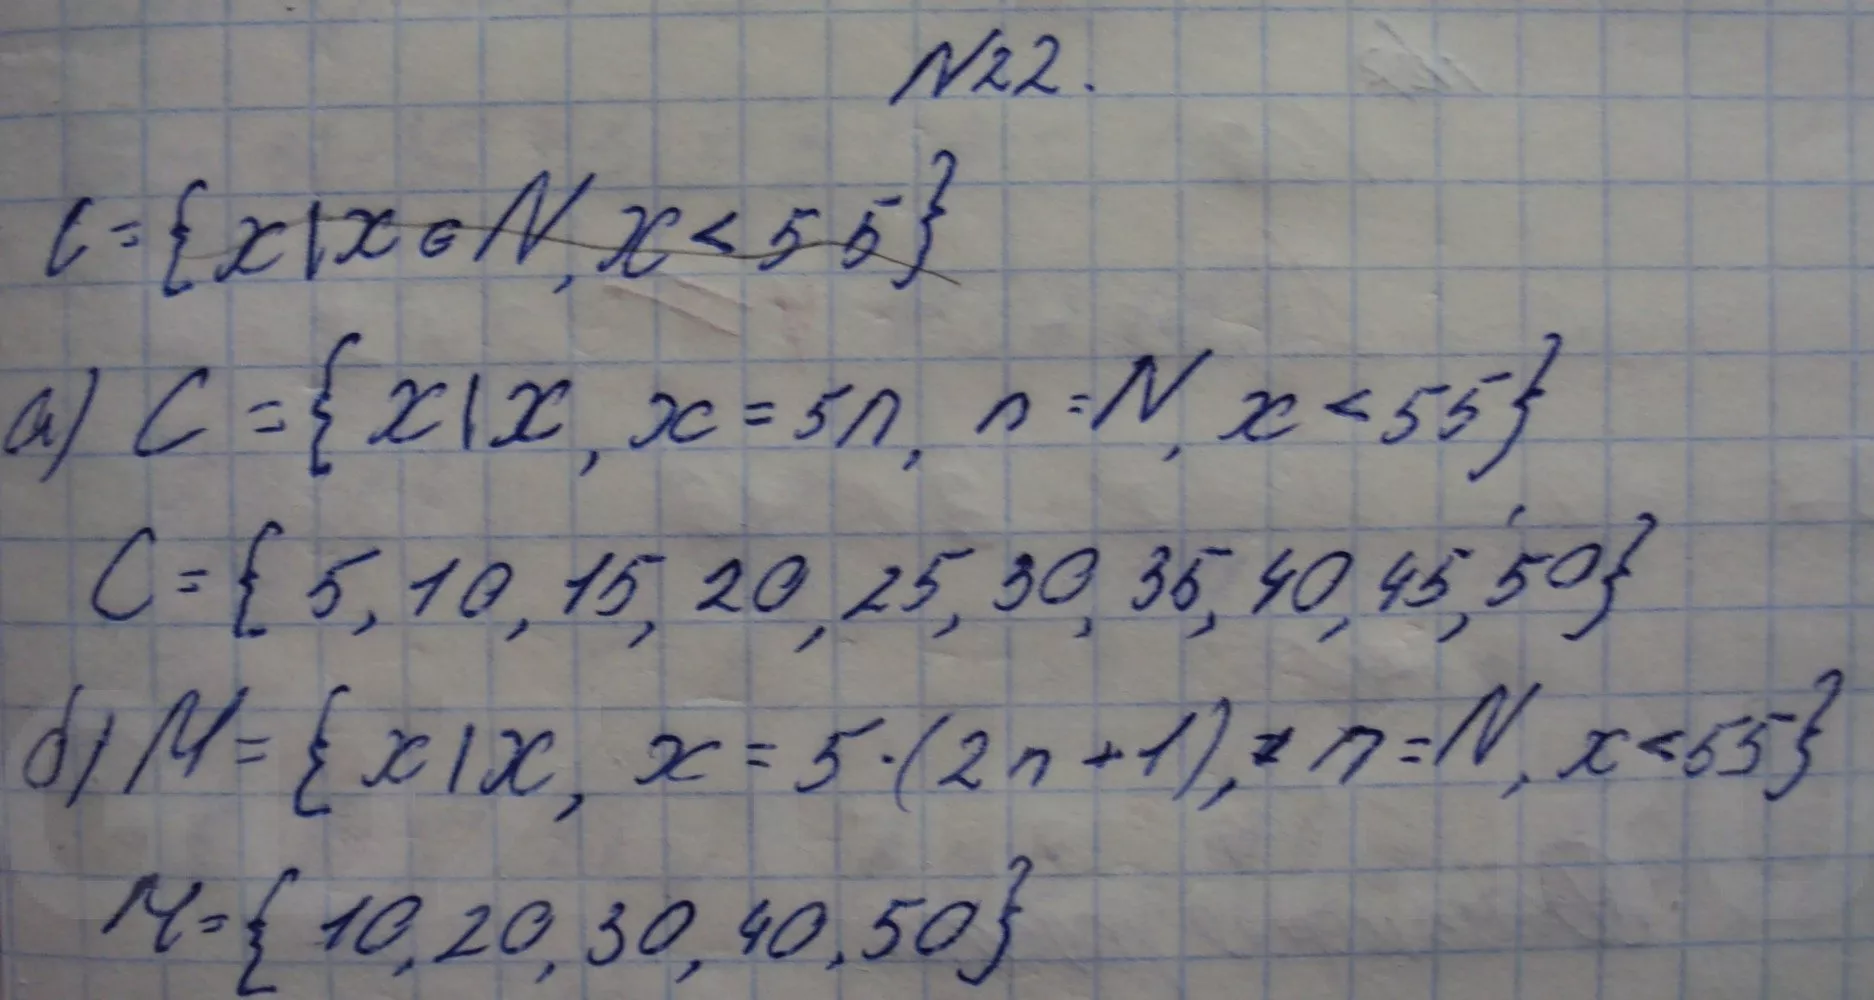 N22.
C={x|x∈N, x<55}
а) C={x|x, x=5n, n=N, x<55}
C={5, 10, 15, 20, 25, 30, 35, 40, 45, 50}
б) M={x|x, x=5·(2n+1), n=N, x<55}
M={10, 20, 30, 40, 50}